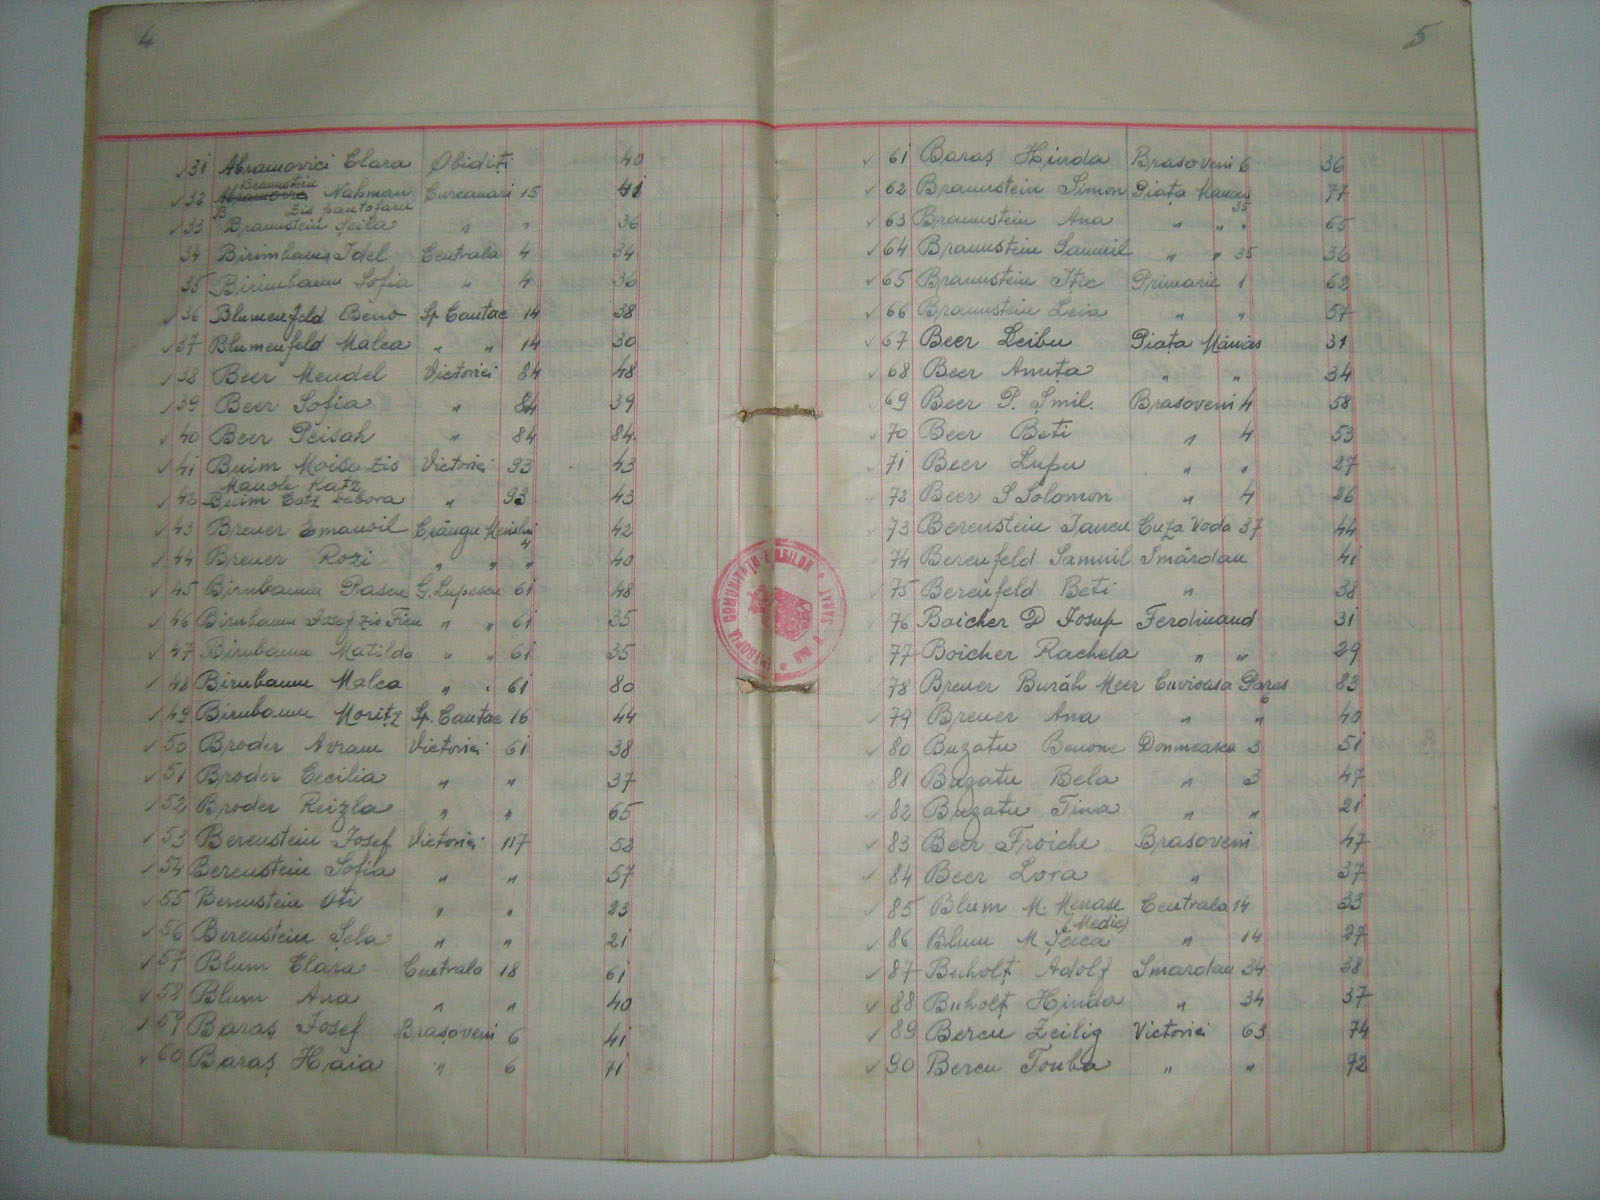 4
31 Abramovici Clara Obidiți 40
Braunstein
32 Nahman Cureanari 15 41
zis pantofaru
33 Braunstein Șeila " " 36
34 Birimbaum Idel Centrala 4 34
35 Birimbaum Sofia " 4 36
36 Blumenfeld Beno Sp Cantac 14 38
37 Blumenfeld Malca " " 14 30
38 Beer Mendel Victoriei 84 48
39 Beer Sofia " 84 39
40 Beer Peisah " 84 84
41 Buim Moise zis Victoriei 93 43
Manole Katz
42 Buim Catz Debora " 93 43
43 Breuer Emanoil Crângu Meiului 42
4
44 Breuer Rozi " " " 40
45 Birnbaum Pascu G. Lupescu 61 48
46 Birnbaum Iosef zis Ficu " " 61 35
47 Birnbaum Matilda " " 61 35
48 Birnbaum Malca " " 61 80
49 Birnbaum Moritz Sp. Cantac 16 44
50 Broder Avram Victoriei 61 38
51 Broder Cecilia " " 37
52 Broder Reizla " " 65
53 Berenstein Iosef Victoriei 117 52
54 Berenstein Sofia " " 57
55 Berenstein Oti " " 23
56 Berenstein Șela " " 21
57 Blum Clara Centrala 18 61
58 Blum Ana " " 40
59 Baraș Iosef Brașoveni 6 41
60 Baraș Haia " 6 71
5
61 Baraș Hinda Brasoveni 6 36
62 Braunstein Simon Piața Hanas 77
35
63 Braunstein Ana " " " 65
64 Braunstein Samuil " " 35 36
65 Braunstein Itic Primarie 1 62
66 Braunstein Leia " " 57
67 Beer Leibu Piața 31
68 Beer Anuța " " 34
69 Beer P. Șmil. Brasoveni 4 58
70 Beer Beti " 4 53
71 Beer Lupu " " 27
72 Beer S Solomon " 4 26
73 Berenstein Iancu Cuza Voda 37 44
74 Berenfeld Samuil Smârdan 41
75 Berenfeld Beti " 38
76 Boicher D Iosup Ferdinand 31
77 Boicher Rachela " " 29
78 Breuer Burăh Meer Cuvioasa Paras 83
6
79 Breuer Ana " " 40
80 Buzatu Benone Domneasca 3 51
81 Buzatu Bela " 3 47
82 Buzatu Tina " " 21
83 Beer Froiche Brasoveni 47
84 Beer Lora " 37
85 Blum M. Menase Centrala 14 33
(Medic)
86 Blum M Șeica " 14 27
87 Buholț Adolf Smardan 34 38
88 Buholț Hinda " 34 37
89 Bercu Zeilig Victoriei 63 74
90 Bercu Touba " " 72
COMUNITATEA EVREILOR